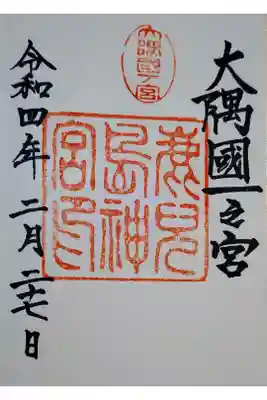 大隅國一之宮
大隅國一ノ宮
鹿児島神宮印
令和四年 二月二十七日